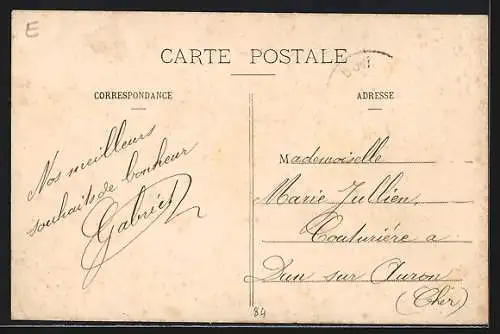 E
CARTE POSTALE
CORRESPONDANCE
ADRESSE
Nos meilleurs
souhaits de bonheur
Gabriel
Mademoiselle
Marie Jullien
Couturière a
Dun sur Auron
(Cher)
84